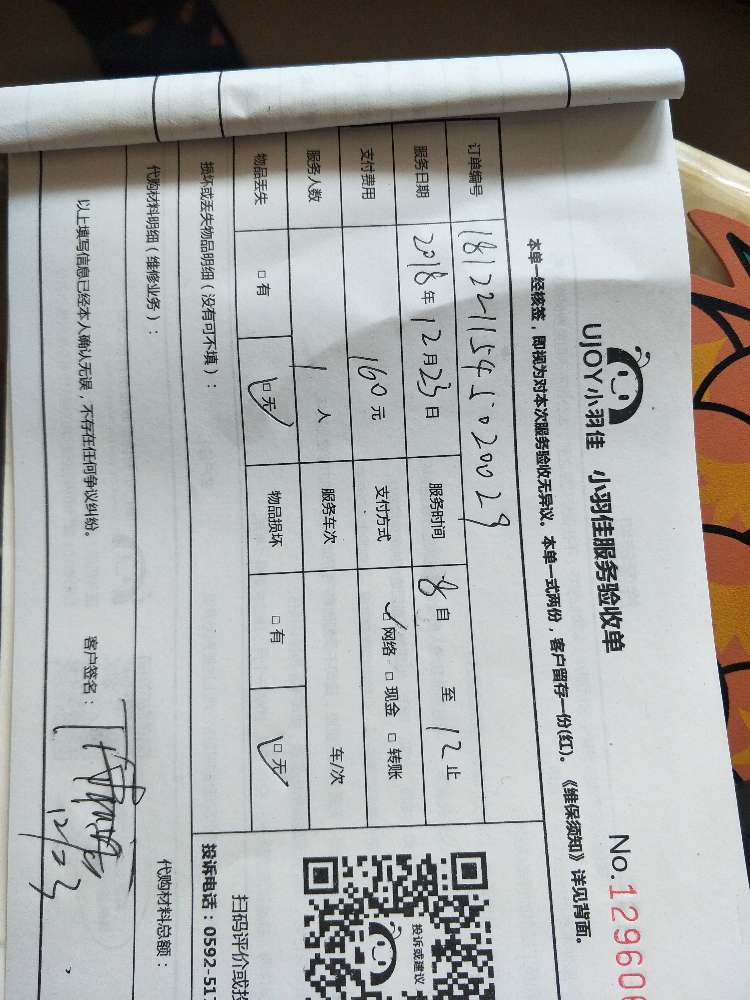 UJOY小羽佳 小羽佳服务验收单 No.12960
本单一经核签，即视为对本次服务验收无异议。本单一式两份，客户留存一份(红)。《维保须知》详见背面。
订单编号 1812211545020029
服务日期 2018年12月23日 服务时间 8自 至 12止
支付费用 160元 支付方式 ☑网络 □现金 □转账
服务人数 1人 服务车次 车/次
物品丢失 □有 ☑无 物品损坏 □有 ☑无
损坏或丢失物品明细（没有可不填）：
投诉或建议
扫码评价或投
投诉电话：0592-51
代购材料明细（维修业务）： 代购材料总额：
以上填写信息已经本人确认无误，不存在任何争议纠纷。 客户签名：
12/23